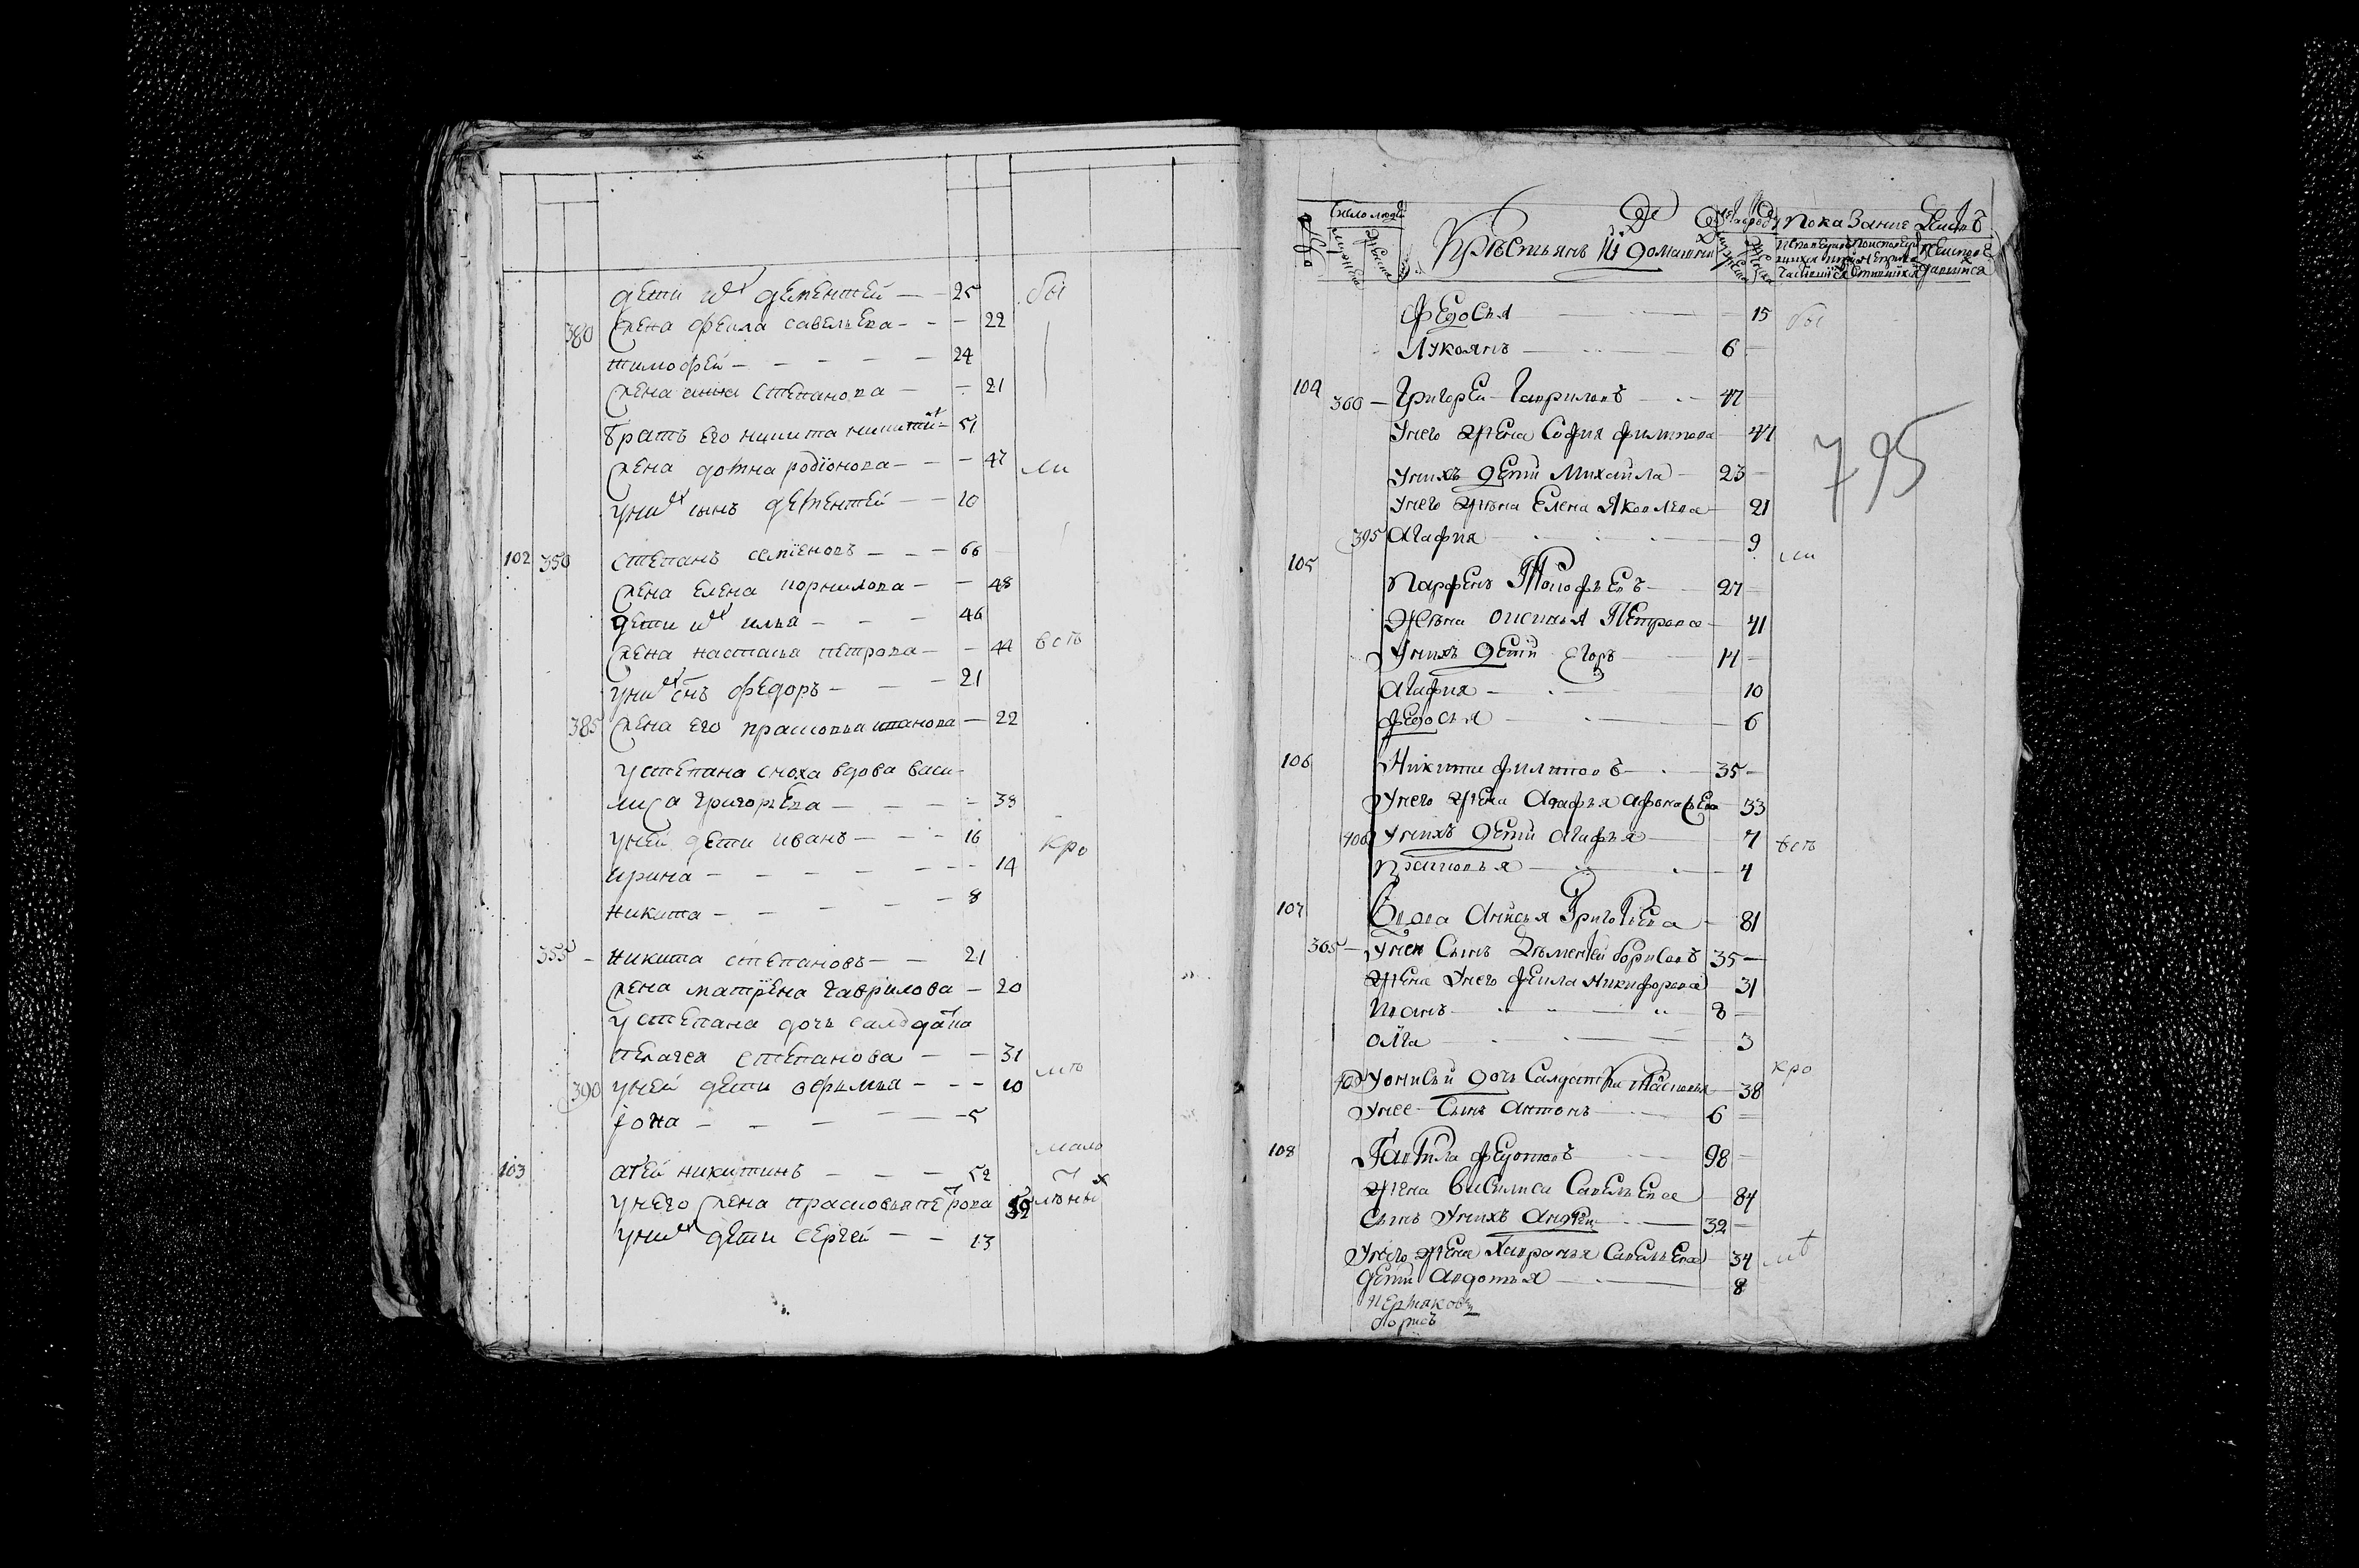 дети их дементей — 25 бы
380 жена фекла савельева — 22
тимофей — 24
жена анна степанова — 21
братъ его никита никитин — 51
жена домна родїонова — 47 ли
у них сынъ дементей — 10
102 350 степанъ семїеновъ — 66
жена елена корнилова — 48
дети их илья — 46
жена настасья петрова — 44 всѣ
у них снъ федоръ — 21
385 жена его прасковья — 22
у степана сноха вдова васи-
лиса григорьева — 38
у ней дети иванъ — 16 кро
ирина — 14
никита — 8
355 — никита степановъ — 21
жена матрїена гаврилова — 20
у степана дочь салдатка
пелагея степанова — 31
390 у ней дети — 10 мѣ
їона — 5
мало
103 никитинъ — 52
у него жена прасковья петрова лѣтных
у них дети сергей — 13
Крѣстьянъ И домашни Пока Зание
Федосья — 15 бы
Лукоянъ — 6
104 360 — Григорей Гавриловъ — 47
У него жена София филипова — 41
У нихъ дети Михайла — 23
795
У него жена Елена Яковлева — 21
395 Агафия — 9
ли
105 Парфенъ — 27
Жена Петрова — 41
У нихъ дети Егоръ — 14
Агафия — 10
Федосья — 6
106 Никита филиповъ — 35
У него жена Агафья — 33
400 У нихъ дети Агафья — 7 всѣ
Прасковья — 4
107 Вдова Анисья Григорьева — 81
365 — У неи Сынъ Дементей борисовъ 35
жена у него фекла Никифорова — 31
Иванъ — 8
Олга — 3
кро
дочь Салдатка — 38
У нее Сынъ Антонъ — 6
108 Гаврила федотовъ — 98
жена Василиса Савельева 84
Сынъ У нихъ Андрей — 32
У него жена Хавронья Савельева — 34 мѣ
дети Авдотья — 8